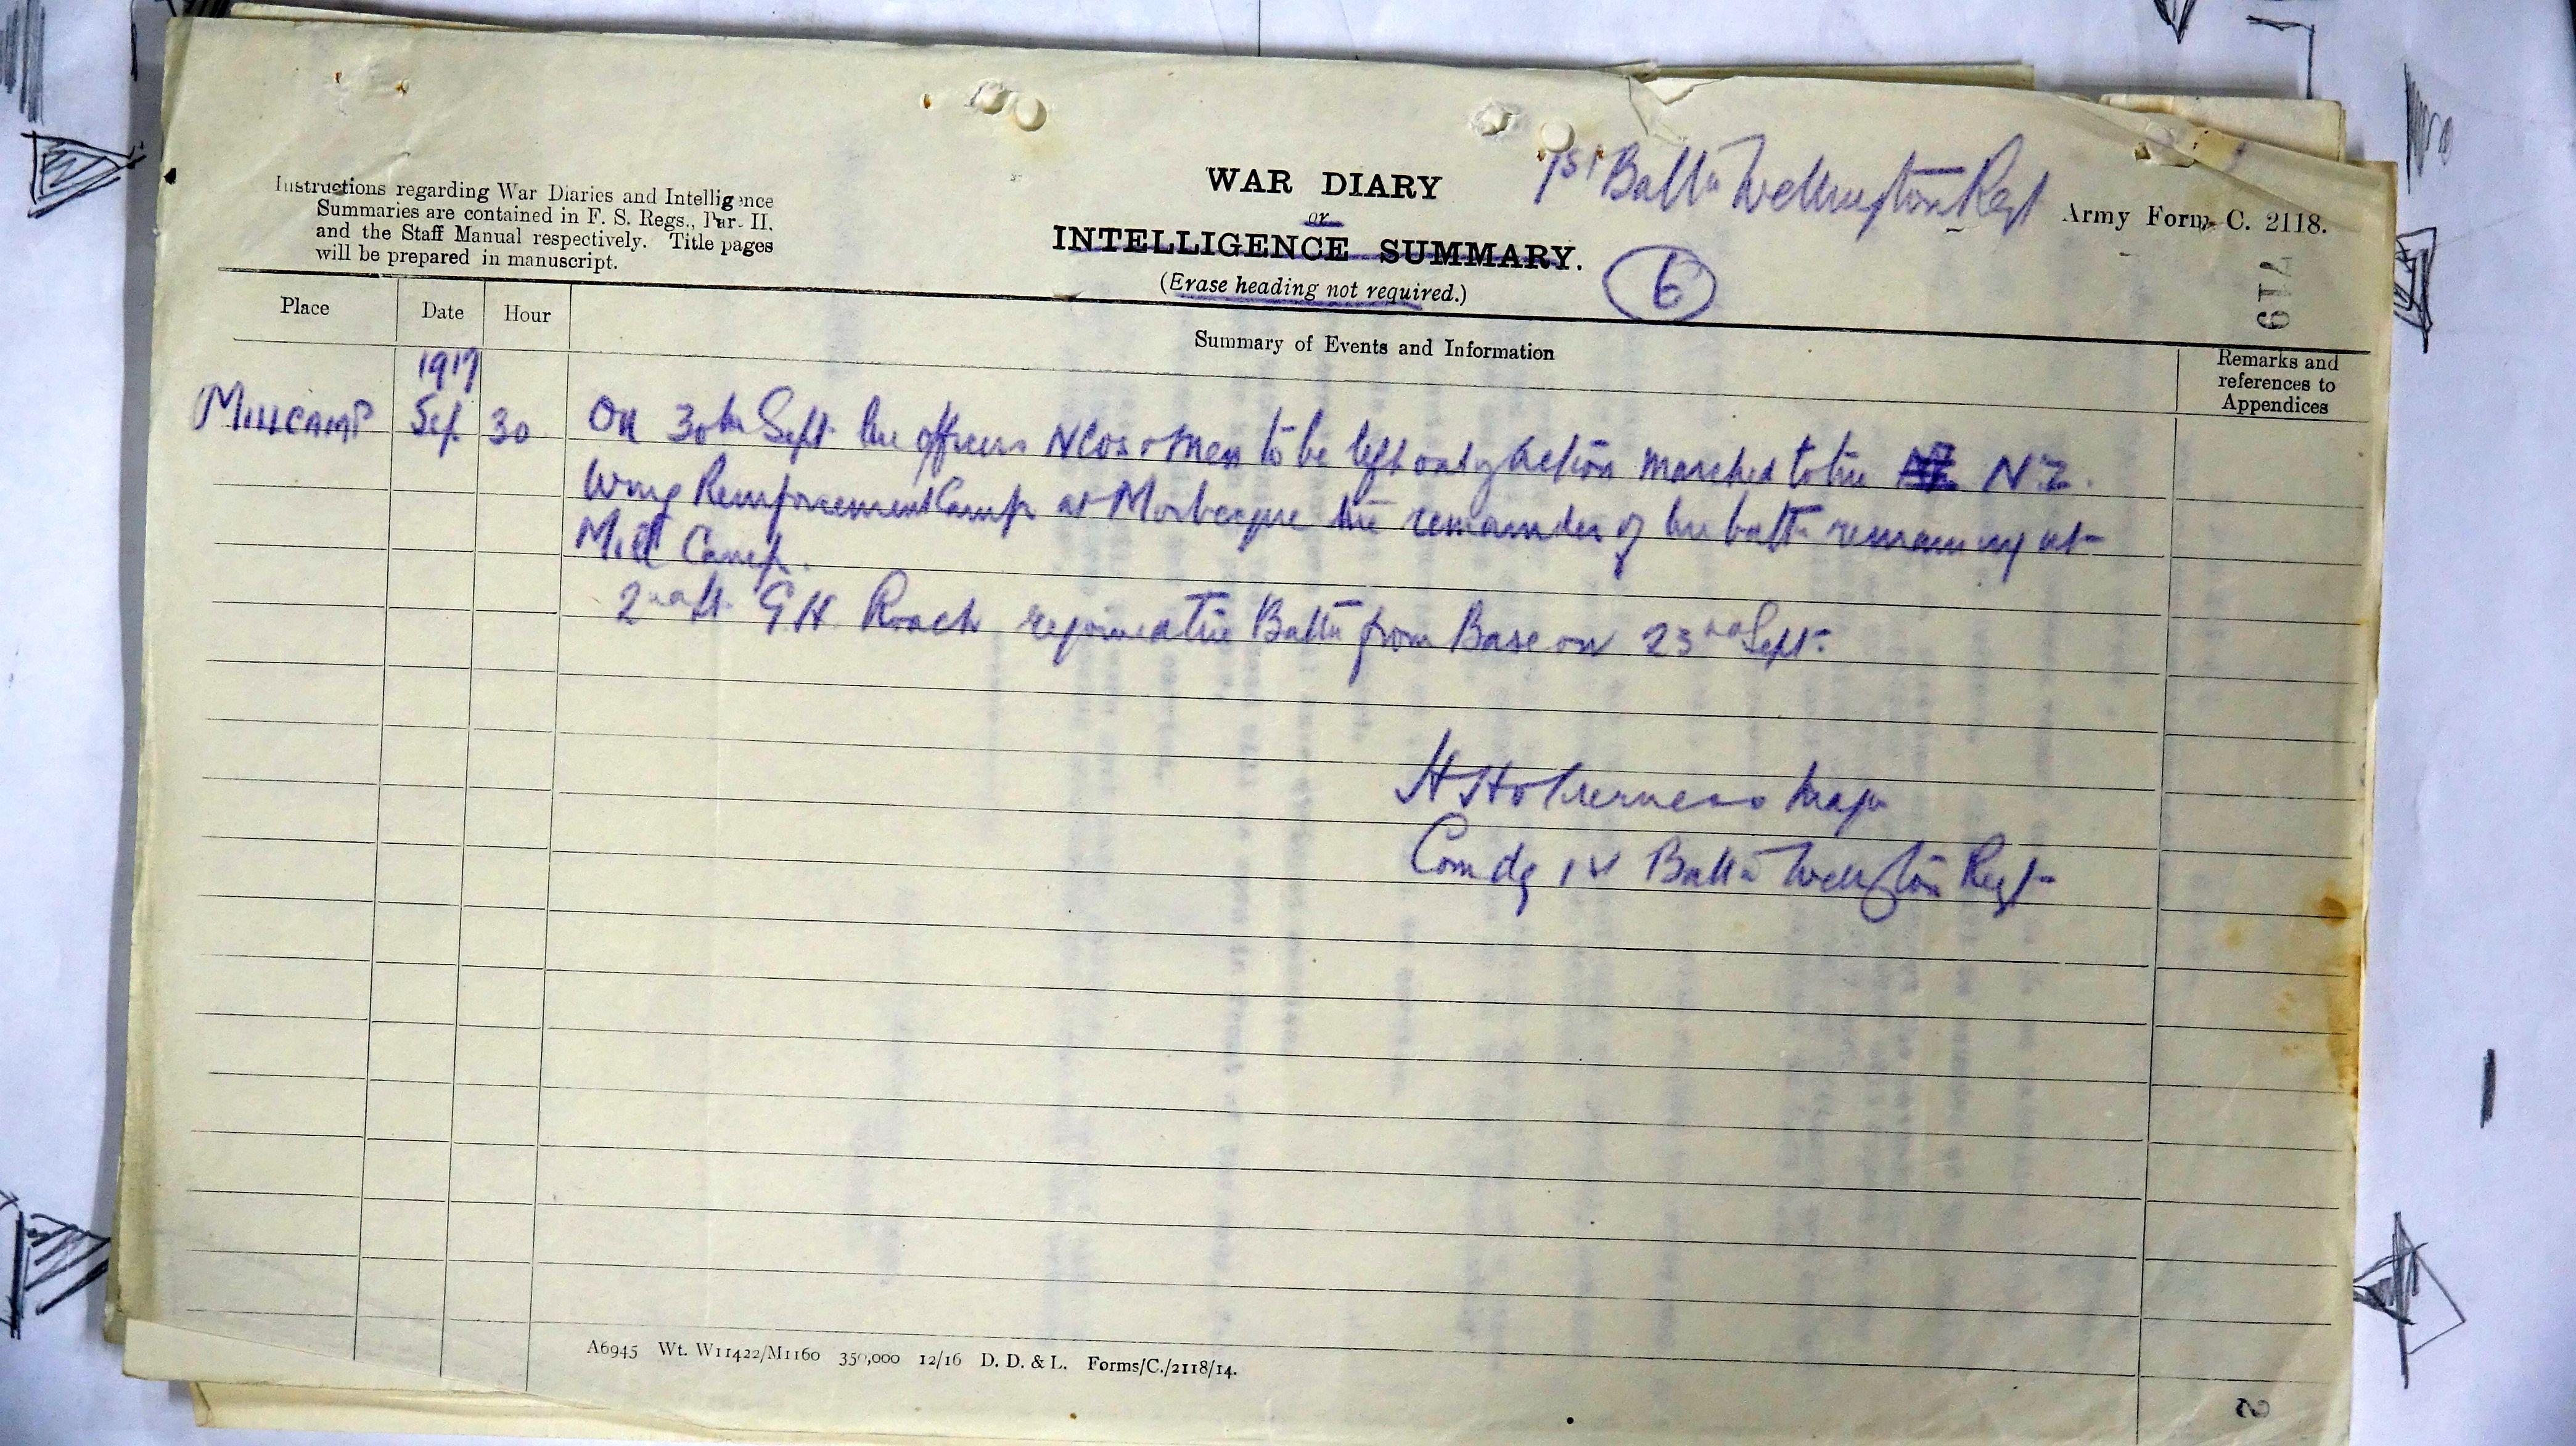 WAR DIARY
or
INTELLIGENCE SUMMARY.
(Erase heading not required.)
1st Battn Wellington Regt
Army Form C. 2118.
6
719
Instructions regarding War Diaries and Intelligence
Summaries are contained in F. S. Regs., Part II.
and the Staff Manual respectively. Title pages
will be prepared in manuscript.
Place
Date
Hour
Summary of Events and Information
Remarks and
references to
Appendices
1917
Mill CAMP Sep 30 On 30th Sept the officers NCOs & Men to be left out of Action marched to the N.Z.
Wing Reinforcement Camp at Morbecque the remainder of the battn remaining at
Mill Camp.
2nd Lt G.H. Roach rejoined the Battn from Base on 23rd Sept.
H Holderness Major
Comdg 1st Battn Wellington Regt
A6945 Wt. W11422/M1160 350,000 12/16 D. D. & L. Forms/C./2118/14.